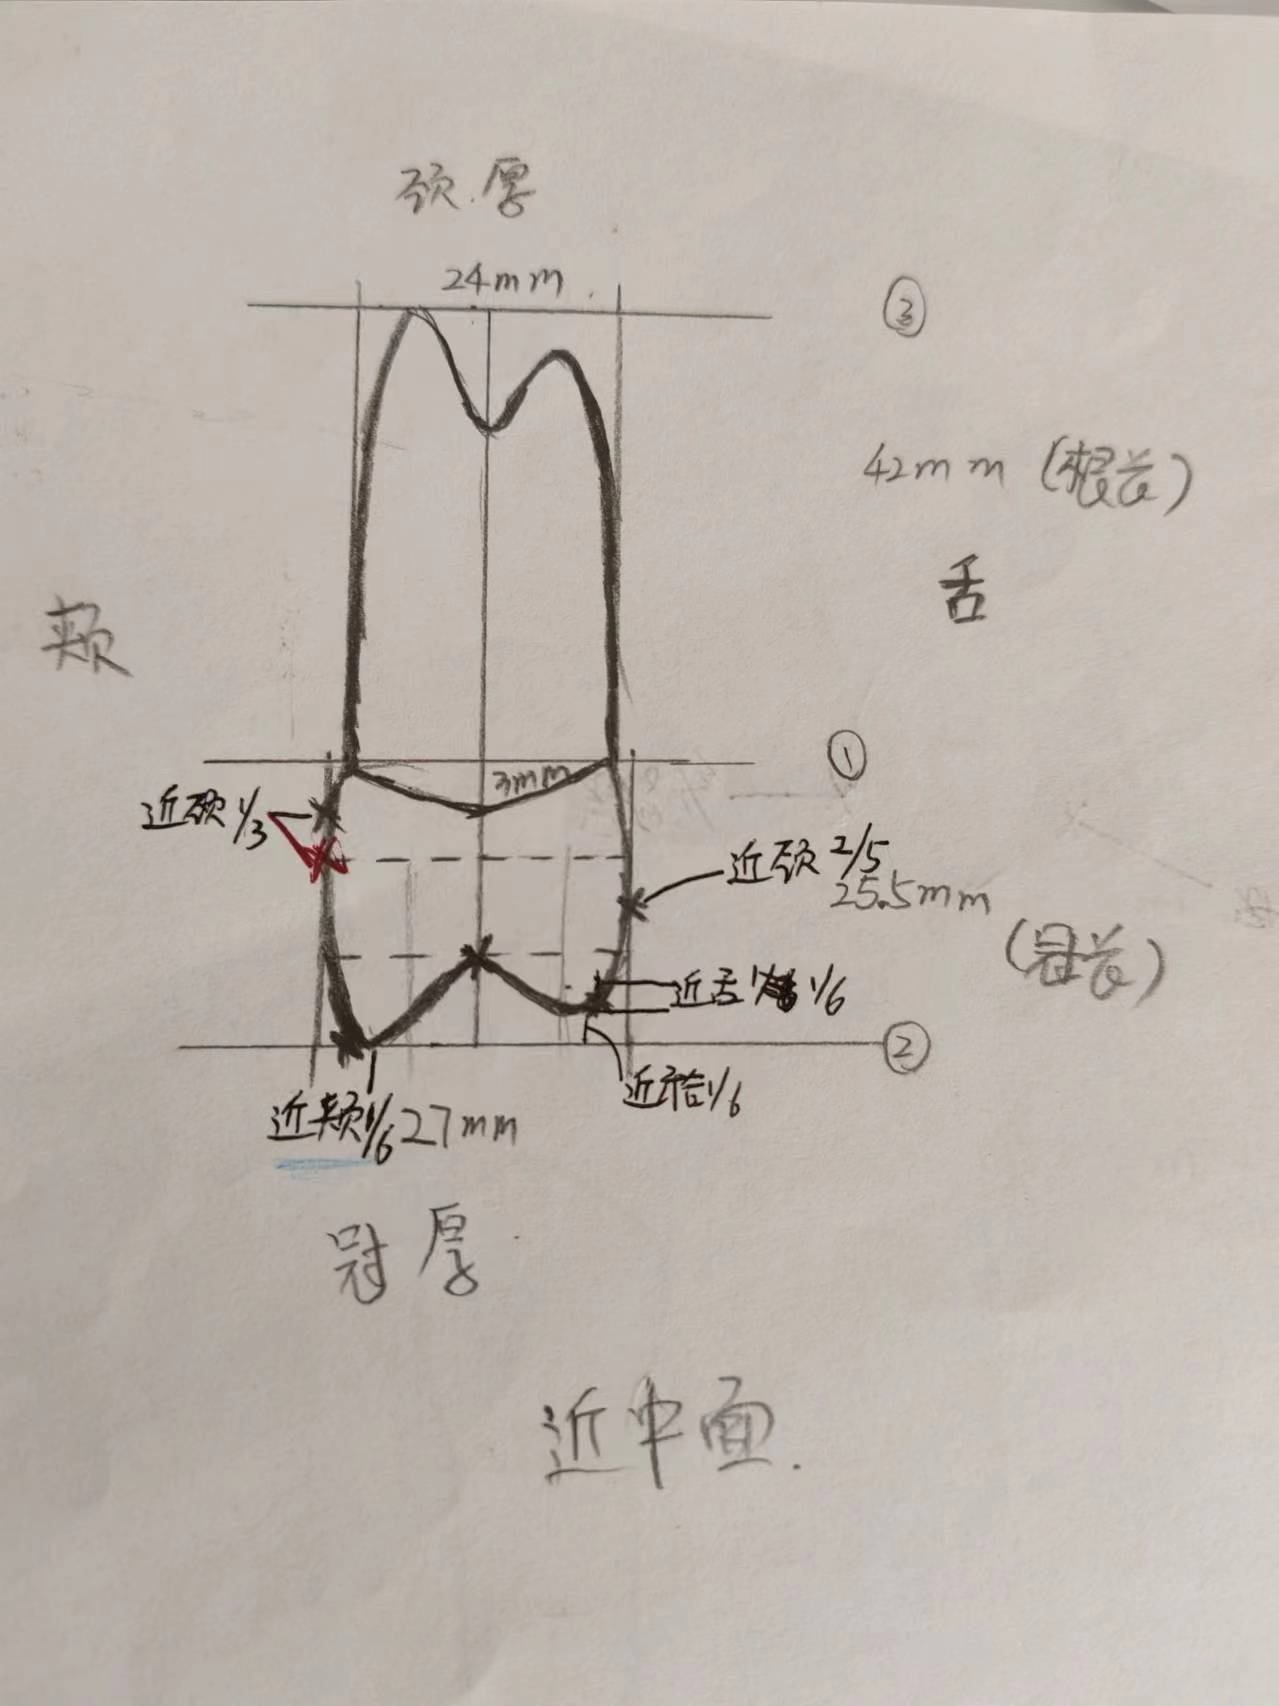 颈.厚
24mm
③
42mm (根长)
舌
颊
①
3mm
近颈1/3
近颈2/5
25.5mm
(冠长)
近舌1/6
②
近𬌗1/6
近颊1/6
27mm
冠厚
近中面.